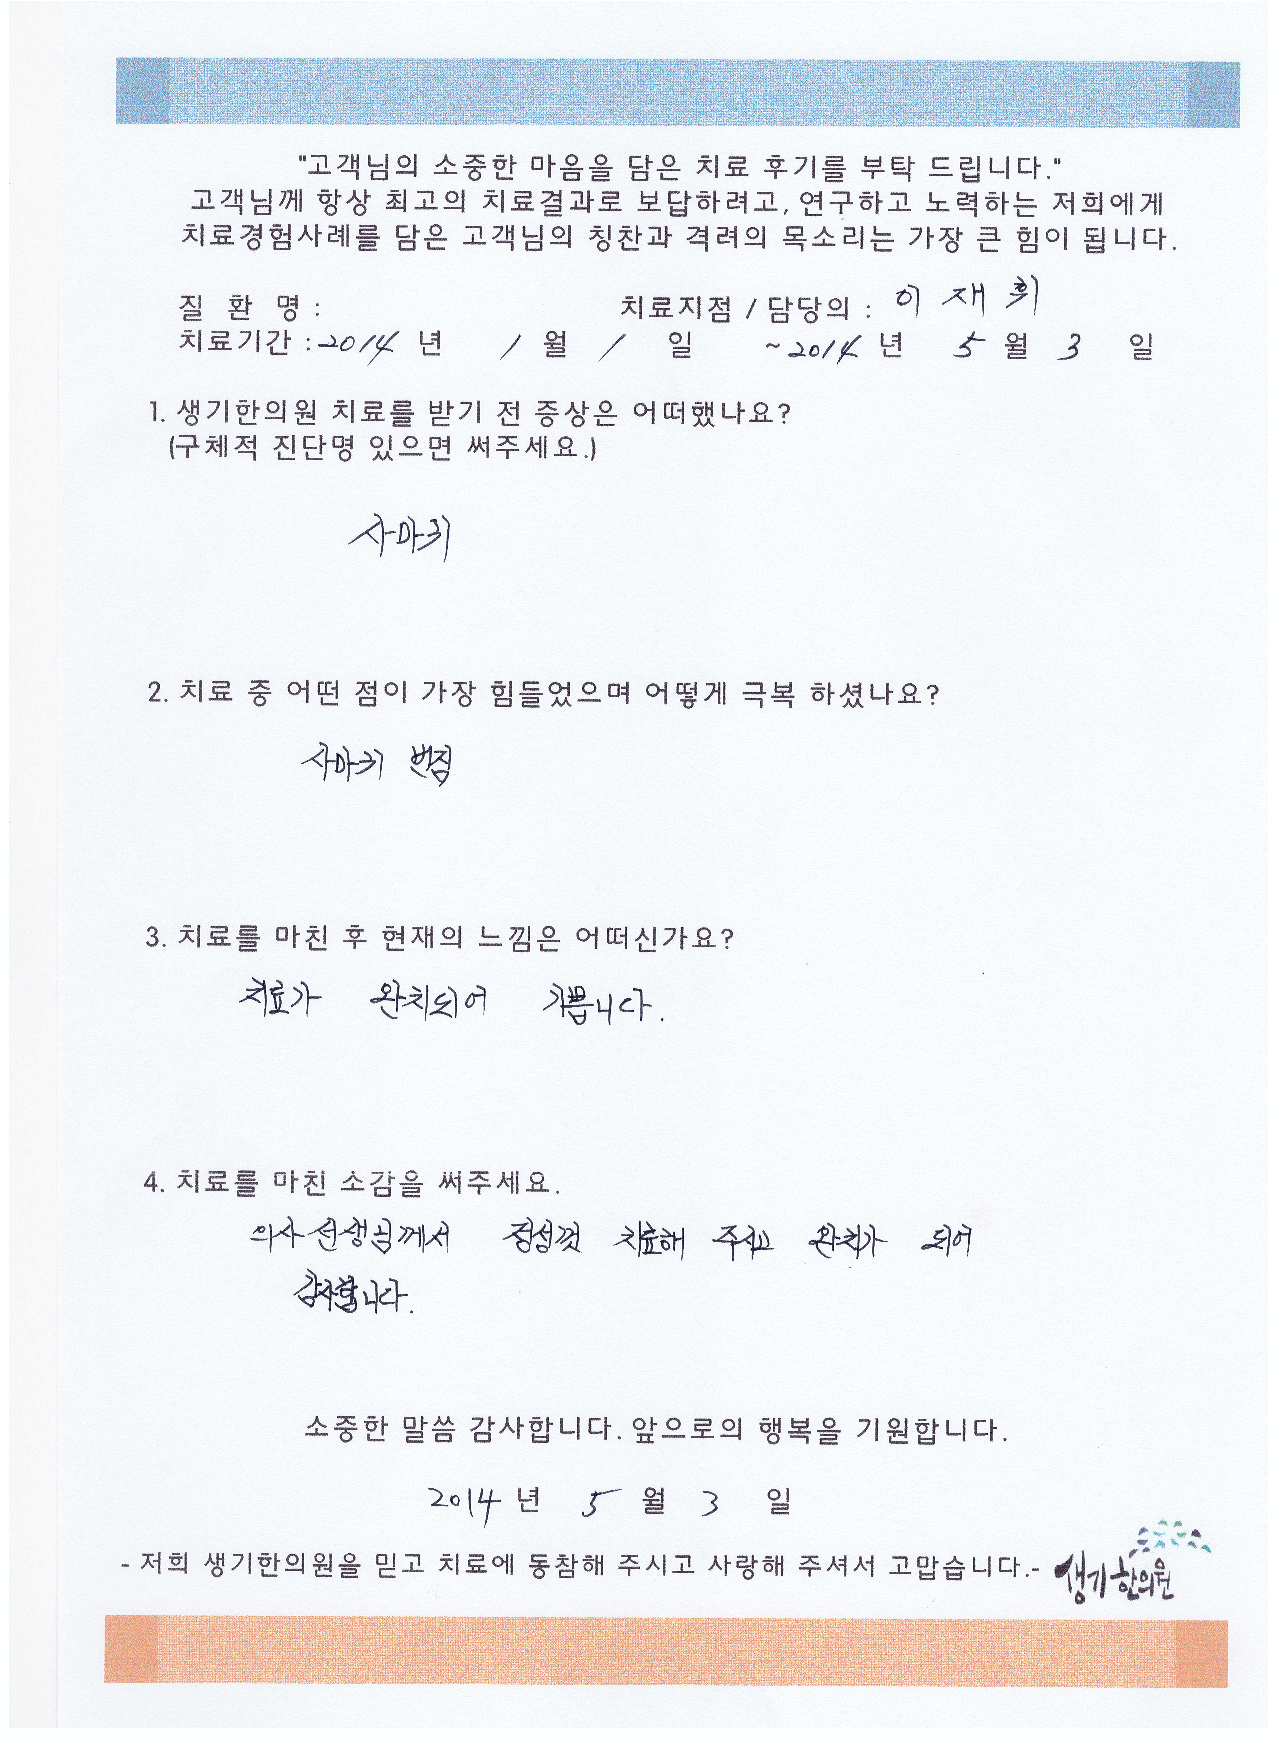 "고객님의 소중한 마음을 담은 치료 후기를 부탁 드립니다."
고객님께 항상 최고의 치료결과로 보답하려고, 연구하고 노력하는 저희에게
치료경험사례를 담은 고객님의 칭찬과 격려의 목소리는 가장 큰 힘이 됩니다.
질 환 명 : 치료지점 / 담당의 : 이재휘
치료기간 : 2014 년 1 월 1 일 ~ 2014 년 5 월 3 일
1. 생기한의원 치료를 받기 전 증상은 어떠했나요?
(구체적 진단명 있으면 써주세요.)
사마귀
2. 치료 중 어떤 점이 가장 힘들었으며 어떻게 극복 하셨나요?
사마귀 번짐
3. 치료를 마친 후 현재의 느낌은 어떠신가요?
치료가 완치되어 기쁩니다.
4. 치료를 마친 소감을 써주세요.
의사선생님께서 정성껏 치료해 주시고 완치가 되어
감사합니다.
소중한 말씀 감사합니다. 앞으로의 행복을 기원합니다.
2014 년 5 월 3 일
- 저희 생기한의원을 믿고 치료에 동참해 주시고 사랑해 주셔서 고맙습니다.- 생기한의원